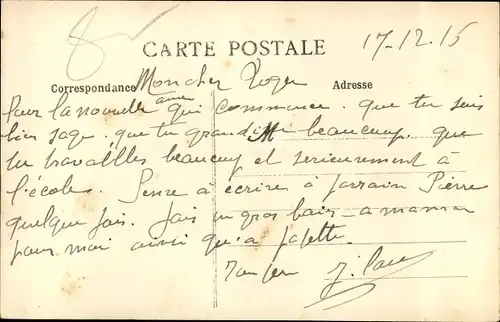 17-12.15
CARTE POSTALE
Correspondance
Adresse
Mon cher Roger
Pour la nouvelle année qui commence. que tu sois
bien sage. que tu grandisse beaucoup. que
tu travailles beaucoup et serieusement à
l'école. Pense à écrire à parrain Pierre
quelque fois. fais un gros baiser a maman
pour moi ainsi qu'a
ton père